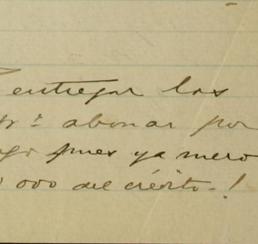 entregar los
abonar por
pues ya mero
000 del crédito.!